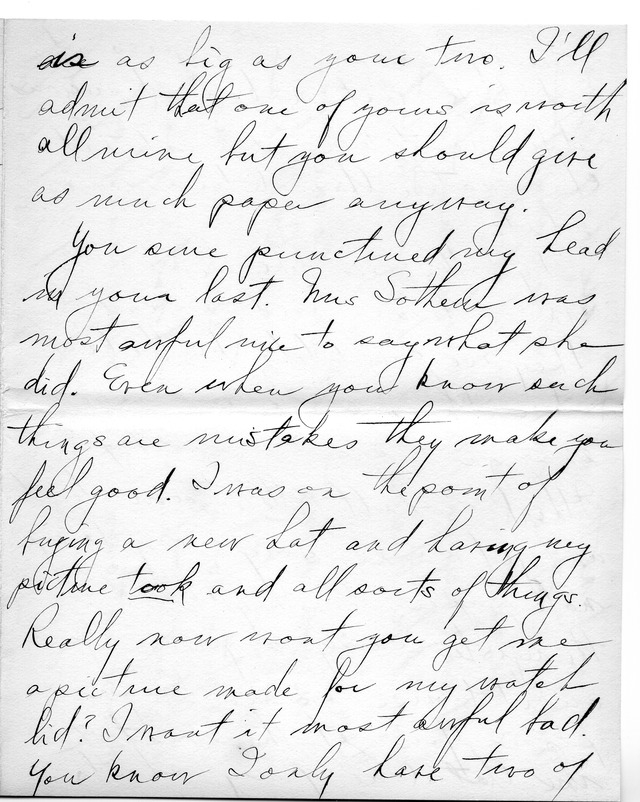 is as big as your two. I'll
admit that one of yours is worth
all mine, but you should give
as much paper anyway.
You sure punctured my head
in your last. Mrs Sothern was
most awful nice to say what she
did. Even when you know such
things are mistakes they make you
feel good. I was on the point of
buying a new hat and having my
picture took and all sorts of things.
Really now wont you get me
a picture made for my watch
lid? I want it most awful bad.
You know I only have two of